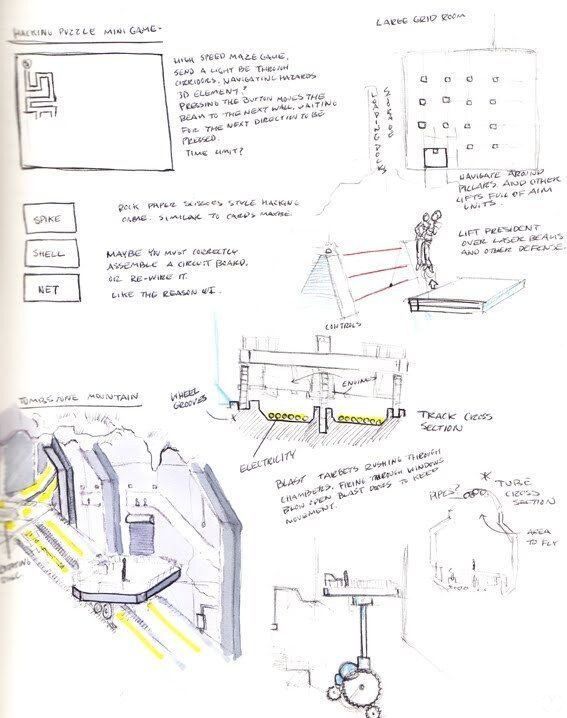 HACKING PUZZLE MINI GAME-
HIGH SPEED MAZE GAME.
SEND A LIGHT BE THROUGH
CORRIDORS, NAVIGATING HAZARDS
3D ELEMENT?
PRESSING THE BUTTON MOVES THE
BEAM TO THE NEXT WALL, WAITING
FOR THE NEXT DIRECTION TO BE
PRESSED.
TIME LIMIT?
ROCK PAPER SCISSORS STYLE HACKING
GAME. SIMILAR TO CARDS MAYBE.
SPIKE
SHELL
NET
MAYBE YOU MUST CORRECTLY
ASSEMBLE A CIRCUIT BOARD.
OR RE-WIRE IT.
LIKE THE REASON UI.
LARGE GRID ROOM
LOADING DOCKS
STORAGE
NAVIGATE AROUND
PILLARS. AND OTHER
LIFTS FULL OF AIM
UNITS.
LIFT PRESIDENT
OVER LASER BEAMS
AND OTHER DEFENSE.
CONTROLS
TOMBSTONE MOUNTAIN
WHEEL
GROOVES
ENGINES
ELECTRICITY
TRACK CROSS
SECTION
BLAST TARGETS RUSHING THROUGH
CHAMBERS, FIRING THROUGH WINDOWS
BLOW OPEN BLAST DOORS TO KEEP
MOVEMENT.
PIPES?
TUBE
CROSS
SECTION
AREA
TO FLY